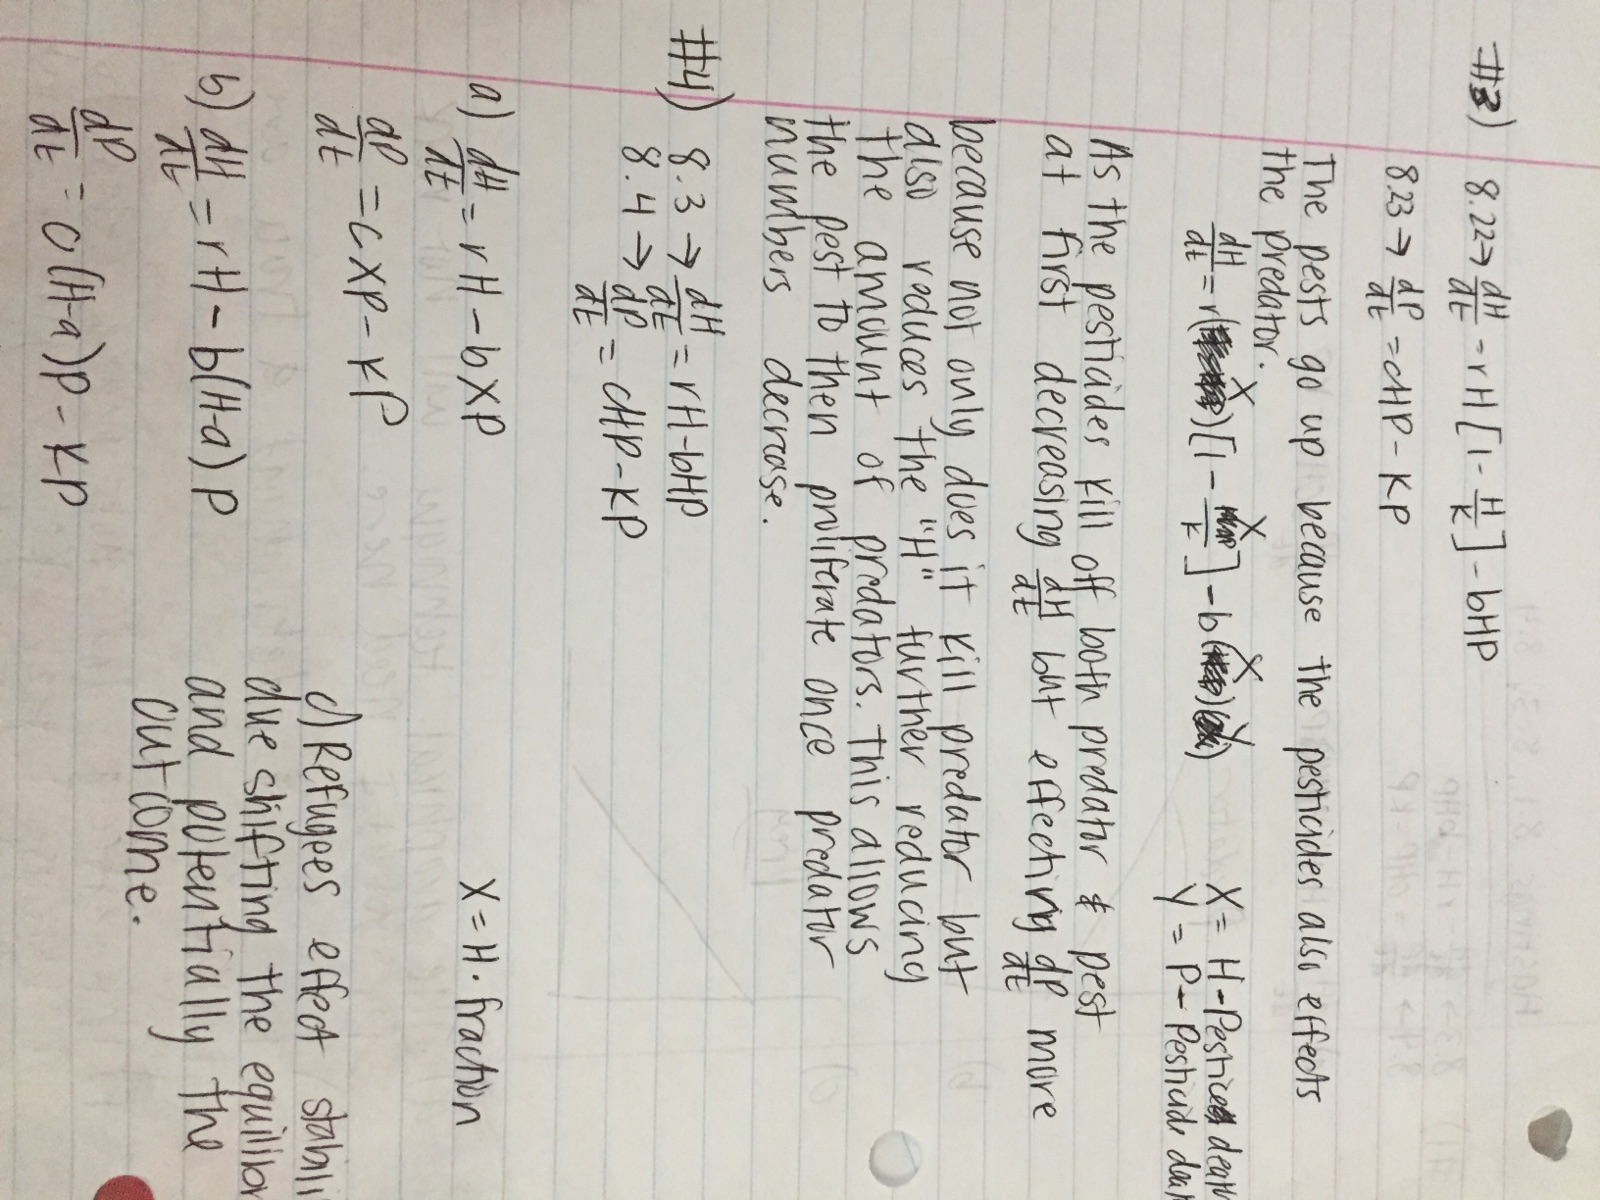 #3) 8.22→ dH/dt = rH[1 - H/K] - bHP
8.23→ dP/dt = cHP - KP
The pests go up because the pesticides also effects
the predator.
dH/dt = r(X)[1 - X/K] - b(X)(Y)
X = H - Pesticide death
Y = P - Pesticide death
As the pesticides kill off both predator & pest
at first decreasing dH/dt but effecting dP/dt more
because not only does it kill predator but
also reduces the "H" further reducing
the amount of predators. This allows
the pest to then proliferate once predator
numbers decrease.
#4) 8.3 → dH/dt = rH-bHP
8.4 → dP/dt = cHP-KP
a) dH/dt = rH - bXP
X = H · fraction
dP/dt = cXP - KP
b) dH/dt = rH - b(H-a)P
dP/dt = c(H-a)P - KP
c) Refugees effect stabili
due shifting the equilibr
and potentially the
outcome.